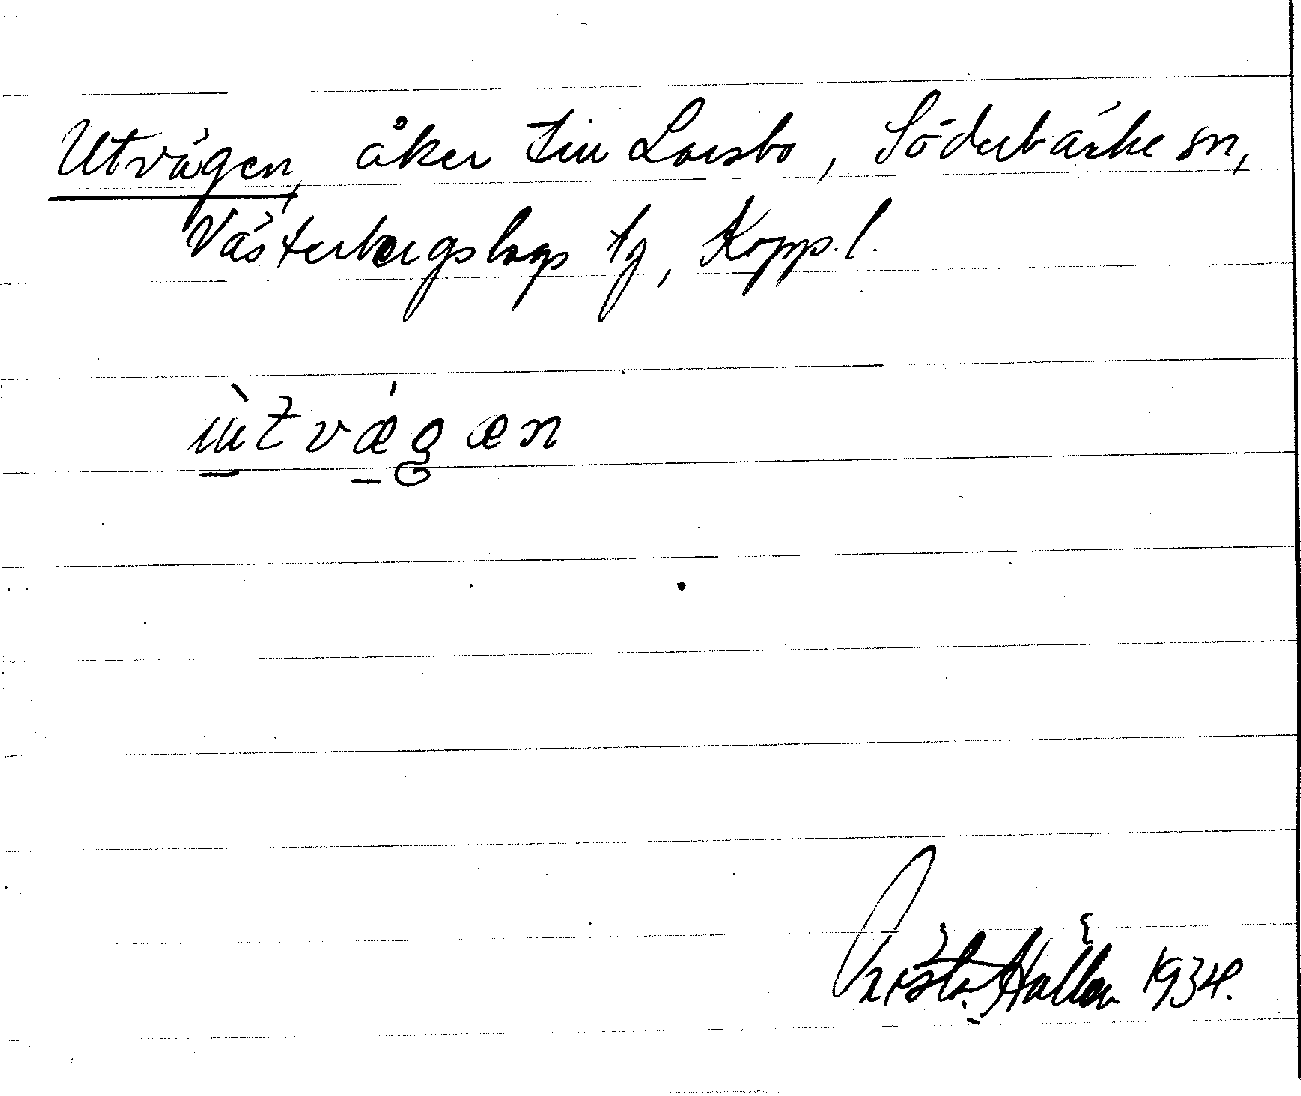 Utvägen, åker till Larsbo, Söderbärke sn,
Västerbergslags tg, Kopp. l.
ùtvǽgæn
Hallén 1934.